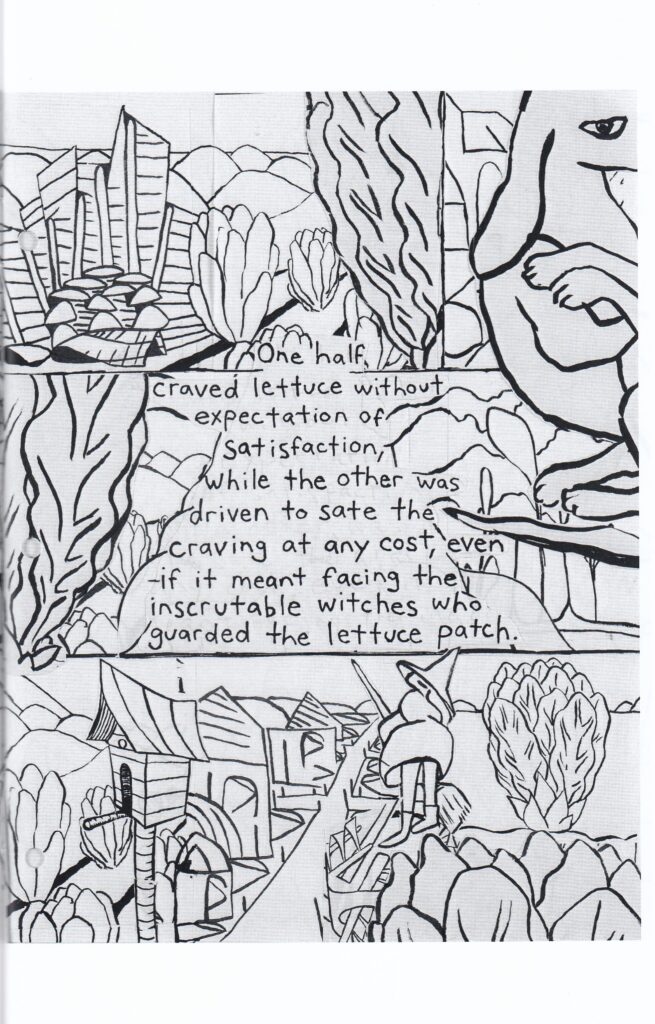 One half
craved lettuce without
expectation of
satisfaction,
while the other was
driven to sate the
craving at any cost, even
if it meant facing the
inscrutable witches who
guarded the lettuce patch.